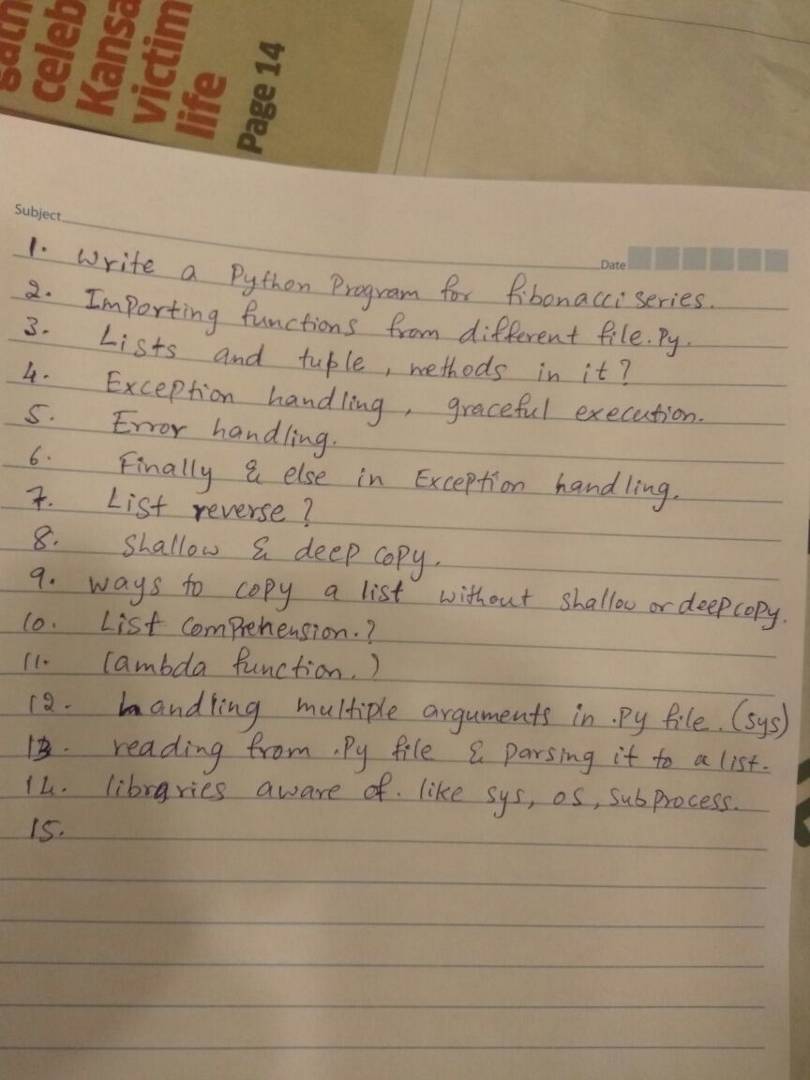 celeb
Kansa
victim
life
Page 14
Subject
Date
1. Write a Python Program for fibonacci series.
2. Importing functions from different file.py.
3. Lists and tuple, methods in it?
4. Exception handling, graceful execution.
5. Error handling.
6. Finally & else in Exception handling.
7. List reverse?
8. Shallow & deep copy.
9. ways to copy a list without shallow or deepcopy.
10. List Comprehension.?
11. lambda function.)
12. handling multiple arguments in .py file. (sys)
13. reading from .Py file & parsing it to a list.
14. libraries aware of. like sys, os, subprocess.
15.